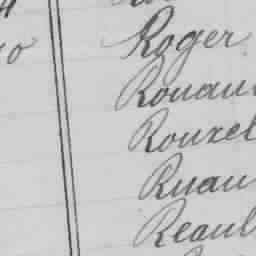 Roger
Rouau
Rouxel
Ruau
Reaul